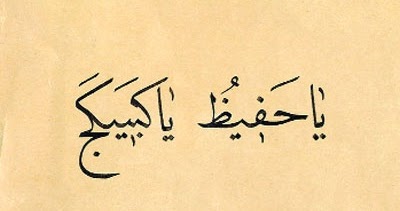 يا حَفيظُ يا كَبيكَجَ